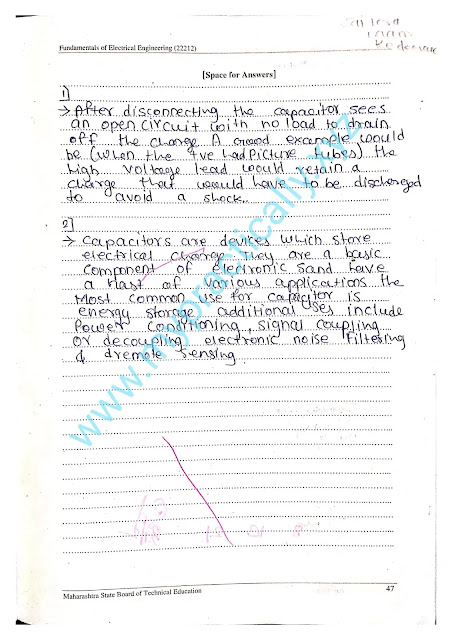 Fundamentals of Electrical Engineering (22212)
[Space for Answers]
1]
→ After disconnecting the capacitor sees
an open circuit with no load to drain
off the charge. A good example would
be (when the tve had picture tubes) the
high voltage lead would retain a
charge that would have to be discharged
to avoid a shock.
2]
→ Capacitors are devices which store
electrical charge they are a basic
component of electronic sand have
a Hast of various applications the
Most common use for capacitor is
energy storage additional uses include
Power conditioning, signal coupling
or decoupling electronic noise filtering
& dremote sensing
www.mypractically.xyz
Maharashtra State Board of Technical Education
47